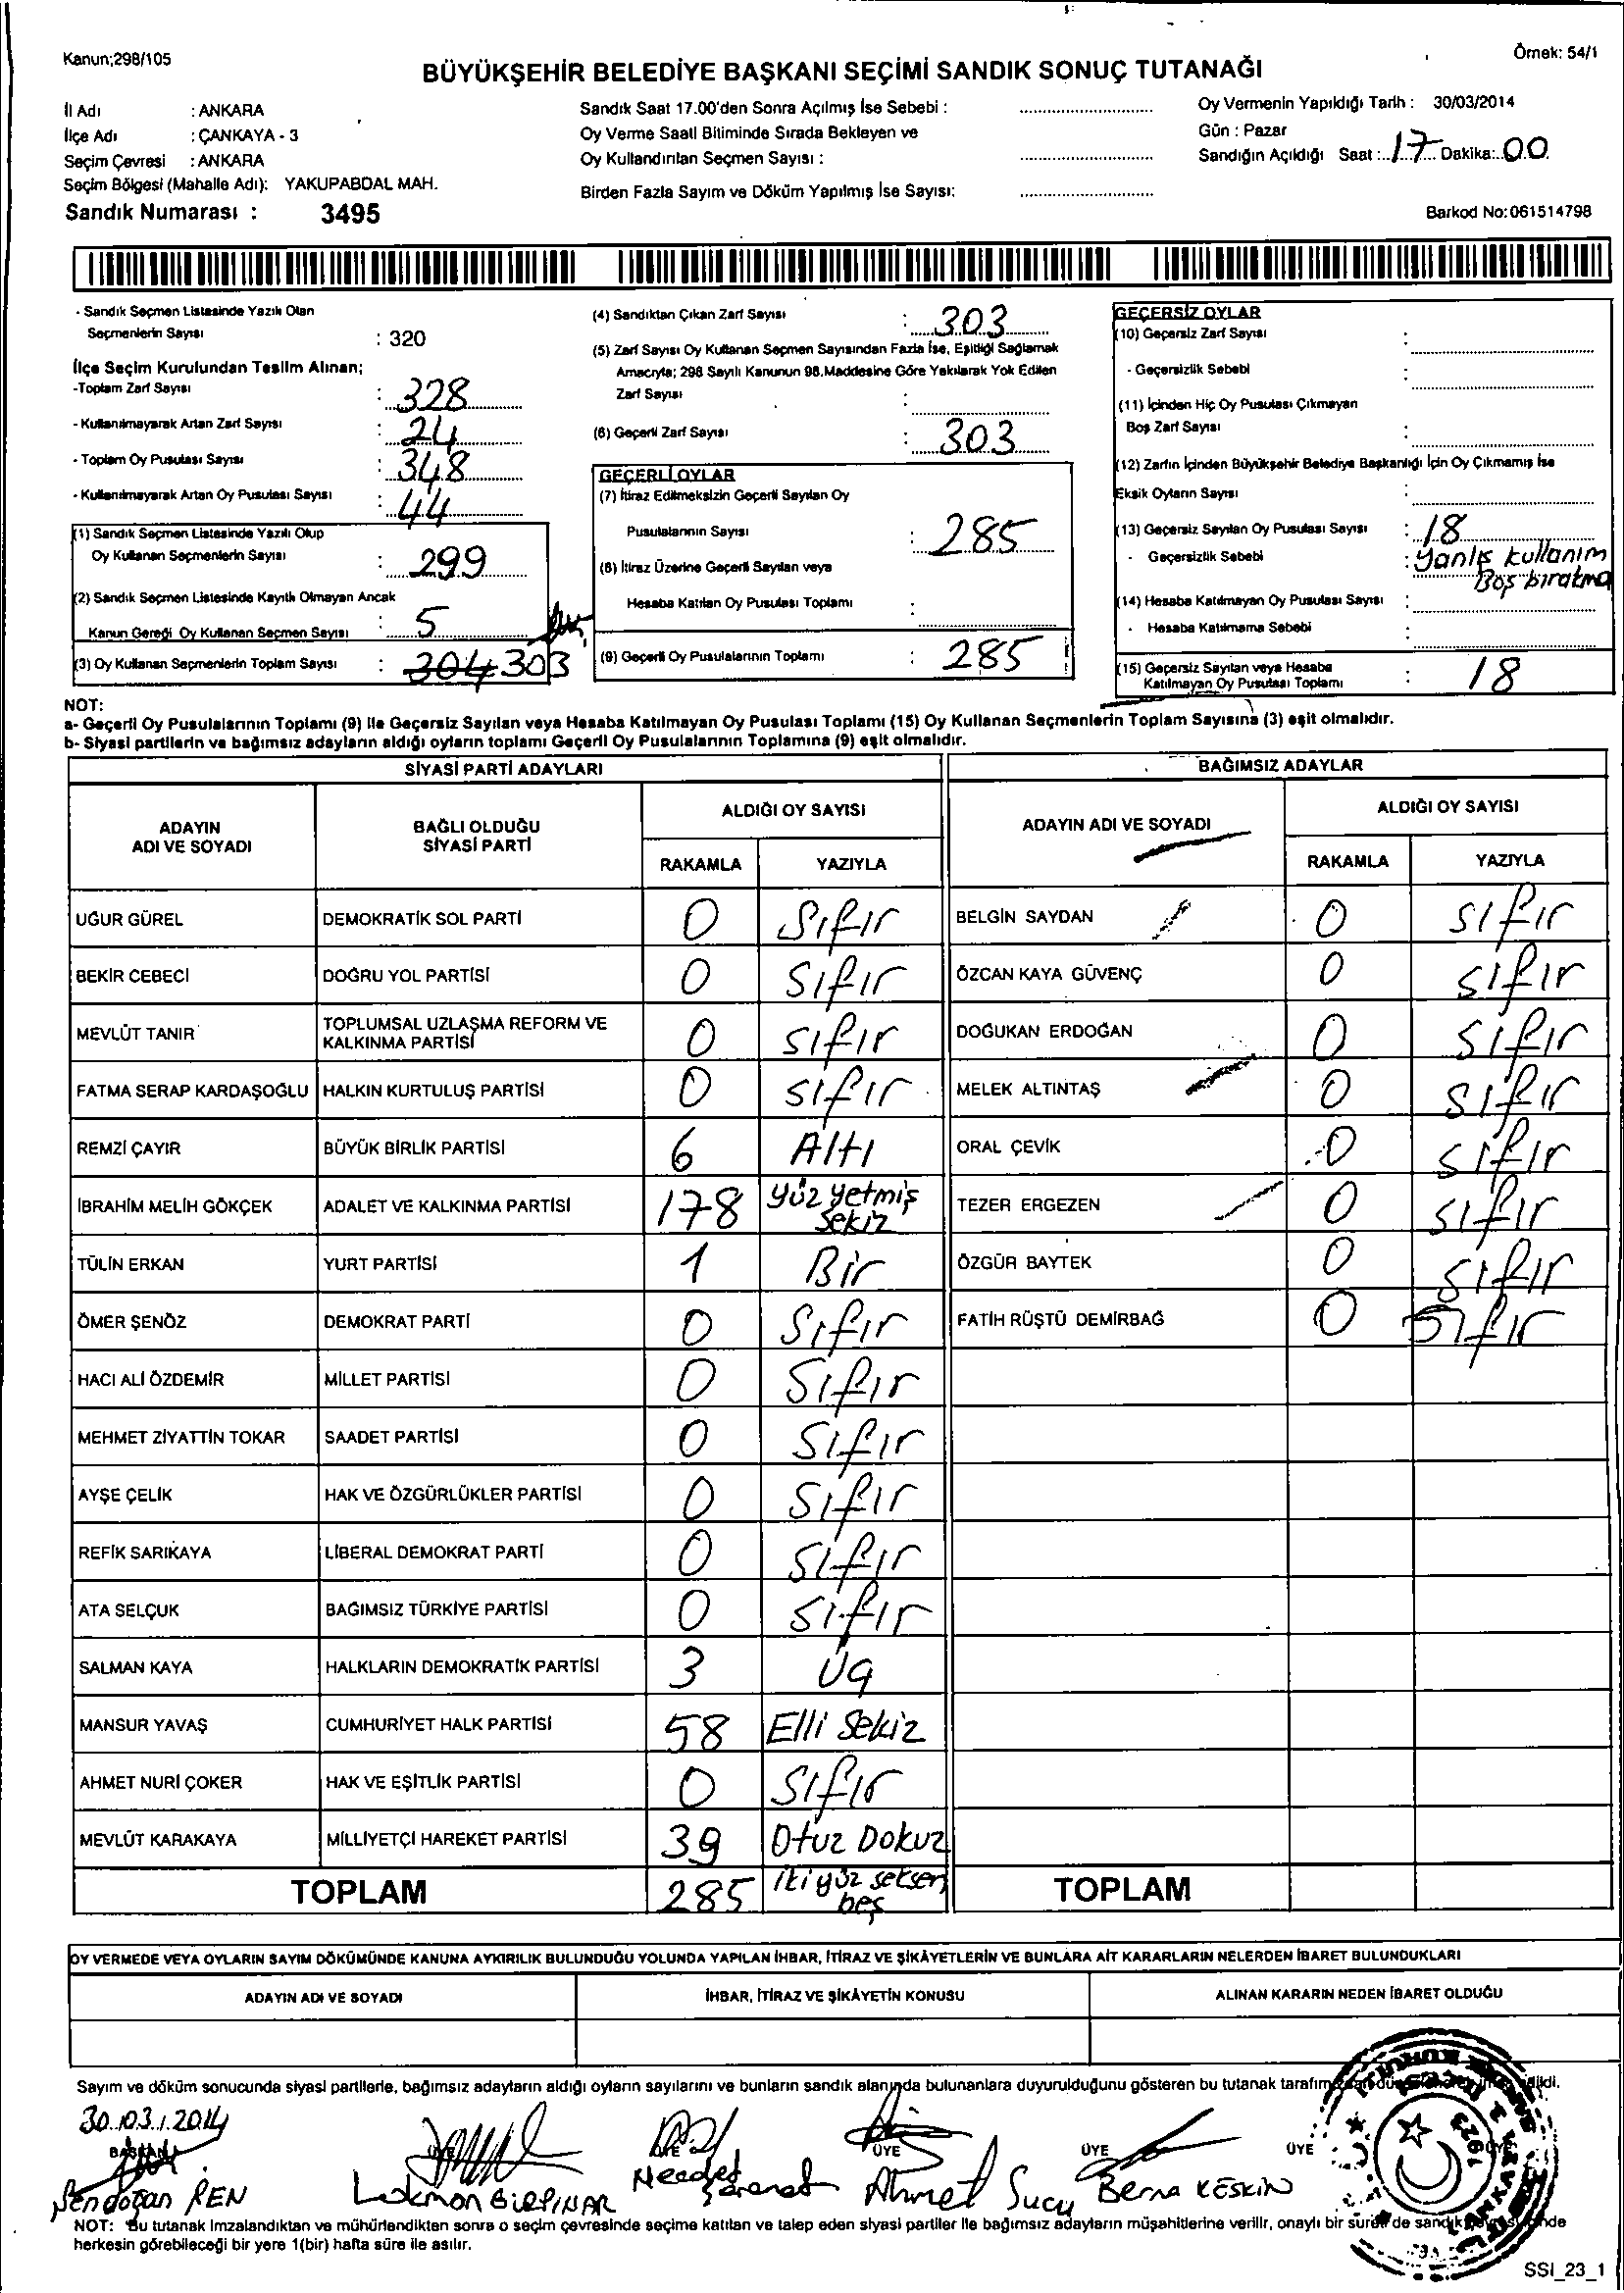 Kanun;298/105
Örnek: 54/1
BÜYÜKŞEHİR BELEDİYE BAŞKANI SEÇİMİ SANDIK SONUÇ TUTANAĞI
İl Adı : ANKARA
İlçe Adı : ÇANKAYA - 3
Seçim Çevresi : ANKARA
Seçim Bölgesi (Mahalle Adı): YAKUPABDAL MAH.
Sandık Numarası : 3495
Sandık Saat 17.00'den Sonra Açılmış İse Sebebi :
Oy Verme Saati Bitiminde Sırada Bekleyen ve
Oy Kullandırılan Seçmen Sayısı :
Birden Fazla Sayım ve Döküm Yapılmış İse Sayısı:
Oy Vermenin Yapıldığı Tarih : 30/03/2014
Gün : Pazar
Sandığın Açıldığı Saat : 17 Dakika: 00
Barkod No:061514798
- Sandık Seçmen Listesinde Yazılı Olan
Seçmenlerin Sayısı : 320
İlçe Seçim Kurulundan Teslim Alınan;
-Toplam Zarf Sayısı : 328
- Kullanılmayarak Artan Zarf Sayısı : 24
- Toplam Oy Pusulası Sayısı : 348
- Kullanılmayarak Artan Oy Pusulası Sayısı : 44
(1) Sandık Seçmen Listesinde Yazılı Olup
Oy Kullanan Seçmenlerin Sayısı : 299
(2) Sandık Seçmen Listesinde Kayıtlı Olmayan Ancak
Kanun Gereği Oy Kullanan Seçmen Sayısı : 5
(3) Oy Kullanan Seçmenlerin Toplam Sayısı : 304 303
(4) Sandıktan Çıkan Zarf Sayısı : 303
(5) Zarf Sayısı Oy Kullanan Seçmen Sayısından Fazla İse, Eşitliği Sağlamak
Amacıyla; 298 Sayılı Kanunun 98.Maddesine Göre Yakılarak Yok Edilen
Zarf Sayısı :
(6) Geçerli Zarf Sayısı : 303
GEÇERLİ OYLAR
(7) İtiraz Edilmeksizin Geçerli Sayılan Oy
Pusulalarının Sayısı : 285
(8) İtiraz Üzerine Geçerli Sayılan veya
Hesaba Katılan Oy Pusulası Toplamı :
(9) Geçerli Oy Pusulalarının Toplamı : 285
GEÇERSİZ OYLAR
(10) Geçersiz Zarf Sayısı :
- Geçersizlik Sebebi :
(11) İçinden Hiç Oy Pusulası Çıkmayan
Boş Zarf Sayısı :
(12) Zarfın İçinden Büyükşehir Belediye Başkanlığı İçin Oy Çıkmamış İse
Eksik Oyların Sayısı :
(13) Geçersiz Sayılan Oy Pusulası Sayısı : 18
- Geçersizlik Sebebi : Yanlış kullanım
Boş bırakma
(14) Hesaba Katılmayan Oy Pusulası Sayısı :
- Hesaba Katılmama Sebebi :
(15) Geçersiz Sayılan veya Hesaba
Katılmayan Oy Pusulası Toplamı : 18
NOT:
a- Geçerli Oy Pusulalarının Toplamı (9) ile Geçersiz Sayılan veya Hesaba Katılmayan Oy Pusulası Toplamı (15) Oy Kullanan Seçmenlerin Toplam Sayısına (3) eşit olmalıdır.
b- Siyasi partilerin ve bağımsız adayların aldığı oyların toplamı Geçerli Oy Pusulalarının Toplamına (9) eşit olmalıdır.
SİYASİ PARTİ ADAYLARI
ADAYIN ADI VE SOYADI
BAĞLI OLDUĞU SİYASİ PARTİ
ALDIĞI OY SAYISI
RAKAMLA YAZIYLA
UĞUR GÜREL DEMOKRATİK SOL PARTİ 0 Sıfır
BEKİR CEBECİ DOĞRU YOL PARTİSİ 0 Sıfır
MEVLÜT TANIR TOPLUMSAL UZLAŞMA REFORM VE KALKINMA PARTİSİ 0 Sıfır
FATMA SERAP KARDAŞOĞLU HALKIN KURTULUŞ PARTİSİ 0 Sıfır
REMZİ ÇAYIR BÜYÜK BİRLİK PARTİSİ 6 Altı
İBRAHİM MELİH GÖKÇEK ADALET VE KALKINMA PARTİSİ 178 Yüz yetmiş sekiz
TÜLİN ERKAN YURT PARTİSİ 1 Bir
ÖMER ŞENÖZ DEMOKRAT PARTİ 0 Sıfır
HACI ALİ ÖZDEMİR MİLLET PARTİSİ 0 Sıfır
MEHMET ZİYATTİN TOKAR SAADET PARTİSİ 0 Sıfır
AYŞE ÇELİK HAK VE ÖZGÜRLÜKLER PARTİSİ 0 Sıfır
REFİK SARIKAYA LİBERAL DEMOKRAT PARTİ 0 Sıfır
ATA SELÇUK BAĞIMSIZ TÜRKİYE PARTİSİ 0 Sıfır
SALMAN KAYA HALKLARIN DEMOKRATİK PARTİSİ 3 Üç
MANSUR YAVAŞ CUMHURİYET HALK PARTİSİ 58 Elli Sekiz
AHMET NURİ ÇOKER HAK VE EŞİTLİK PARTİSİ 0 Sıfır
MEVLÜT KARAKAYA MİLLİYETÇİ HAREKET PARTİSİ 39 Otuz Dokuz
TOPLAM 285 iki yüz seksen beş
BAĞIMSIZ ADAYLAR
ADAYIN ADI VE SOYADI
ALDIĞI OY SAYISI
RAKAMLA YAZIYLA
BELGİN SAYDAN 0 Sıfır
ÖZCAN KAYA GÜVENÇ 0 Sıfır
DOĞUKAN ERDOĞAN 0 Sıfır
MELEK ALTINTAŞ 0 Sıfır
ORAL ÇEVİK 0 Sıfır
TEZER ERGEZEN 0 Sıfır
ÖZGÜR BAYTEK 0 Sıfır
FATİH RÜŞTÜ DEMİRBAĞ 0 Sıfır
TOPLAM
OY VERMEDE VEYA OYLARIN SAYIM DÖKÜMÜNDE KANUNA AYKIRILIK BULUNDUĞU YOLUNDA YAPILAN İHBAR, İTİRAZ VE ŞİKÂYETLERİN VE BUNLARA AİT KARARLARIN NELERDEN İBARET BULUNDUKLARI
ADAYIN ADI VE SOYADI
İHBAR, İTİRAZ VE ŞİKÂYETİN KONUSU
ALINAN KARARIN NEDEN İBARET OLDUĞU
Sayım ve döküm sonucunda siyasi partilerle, bağımsız adayların aldığı oyların sayılarını ve bunların sandık alanında bulunanlara duyurulduğunu gösteren bu tutanak
30.03.2014
BAŞKAN ÜYE ÜYE ÜYE ÜYE ÜYE
Şendoğan REN Lokman Necdet Ahmet Sucu Berna KESKİN
NOT: Bu tutanak imzalandıktan ve mühürlendikten sonra o seçim çevresinde seçime katılan ve talep eden siyasi partiler ile bağımsız adayların müşahitlerine verilir, onaylı bir sureti de
herkesin görebileceği bir yere 1(bir) hafta süre ile asılır.
SSI_23_1